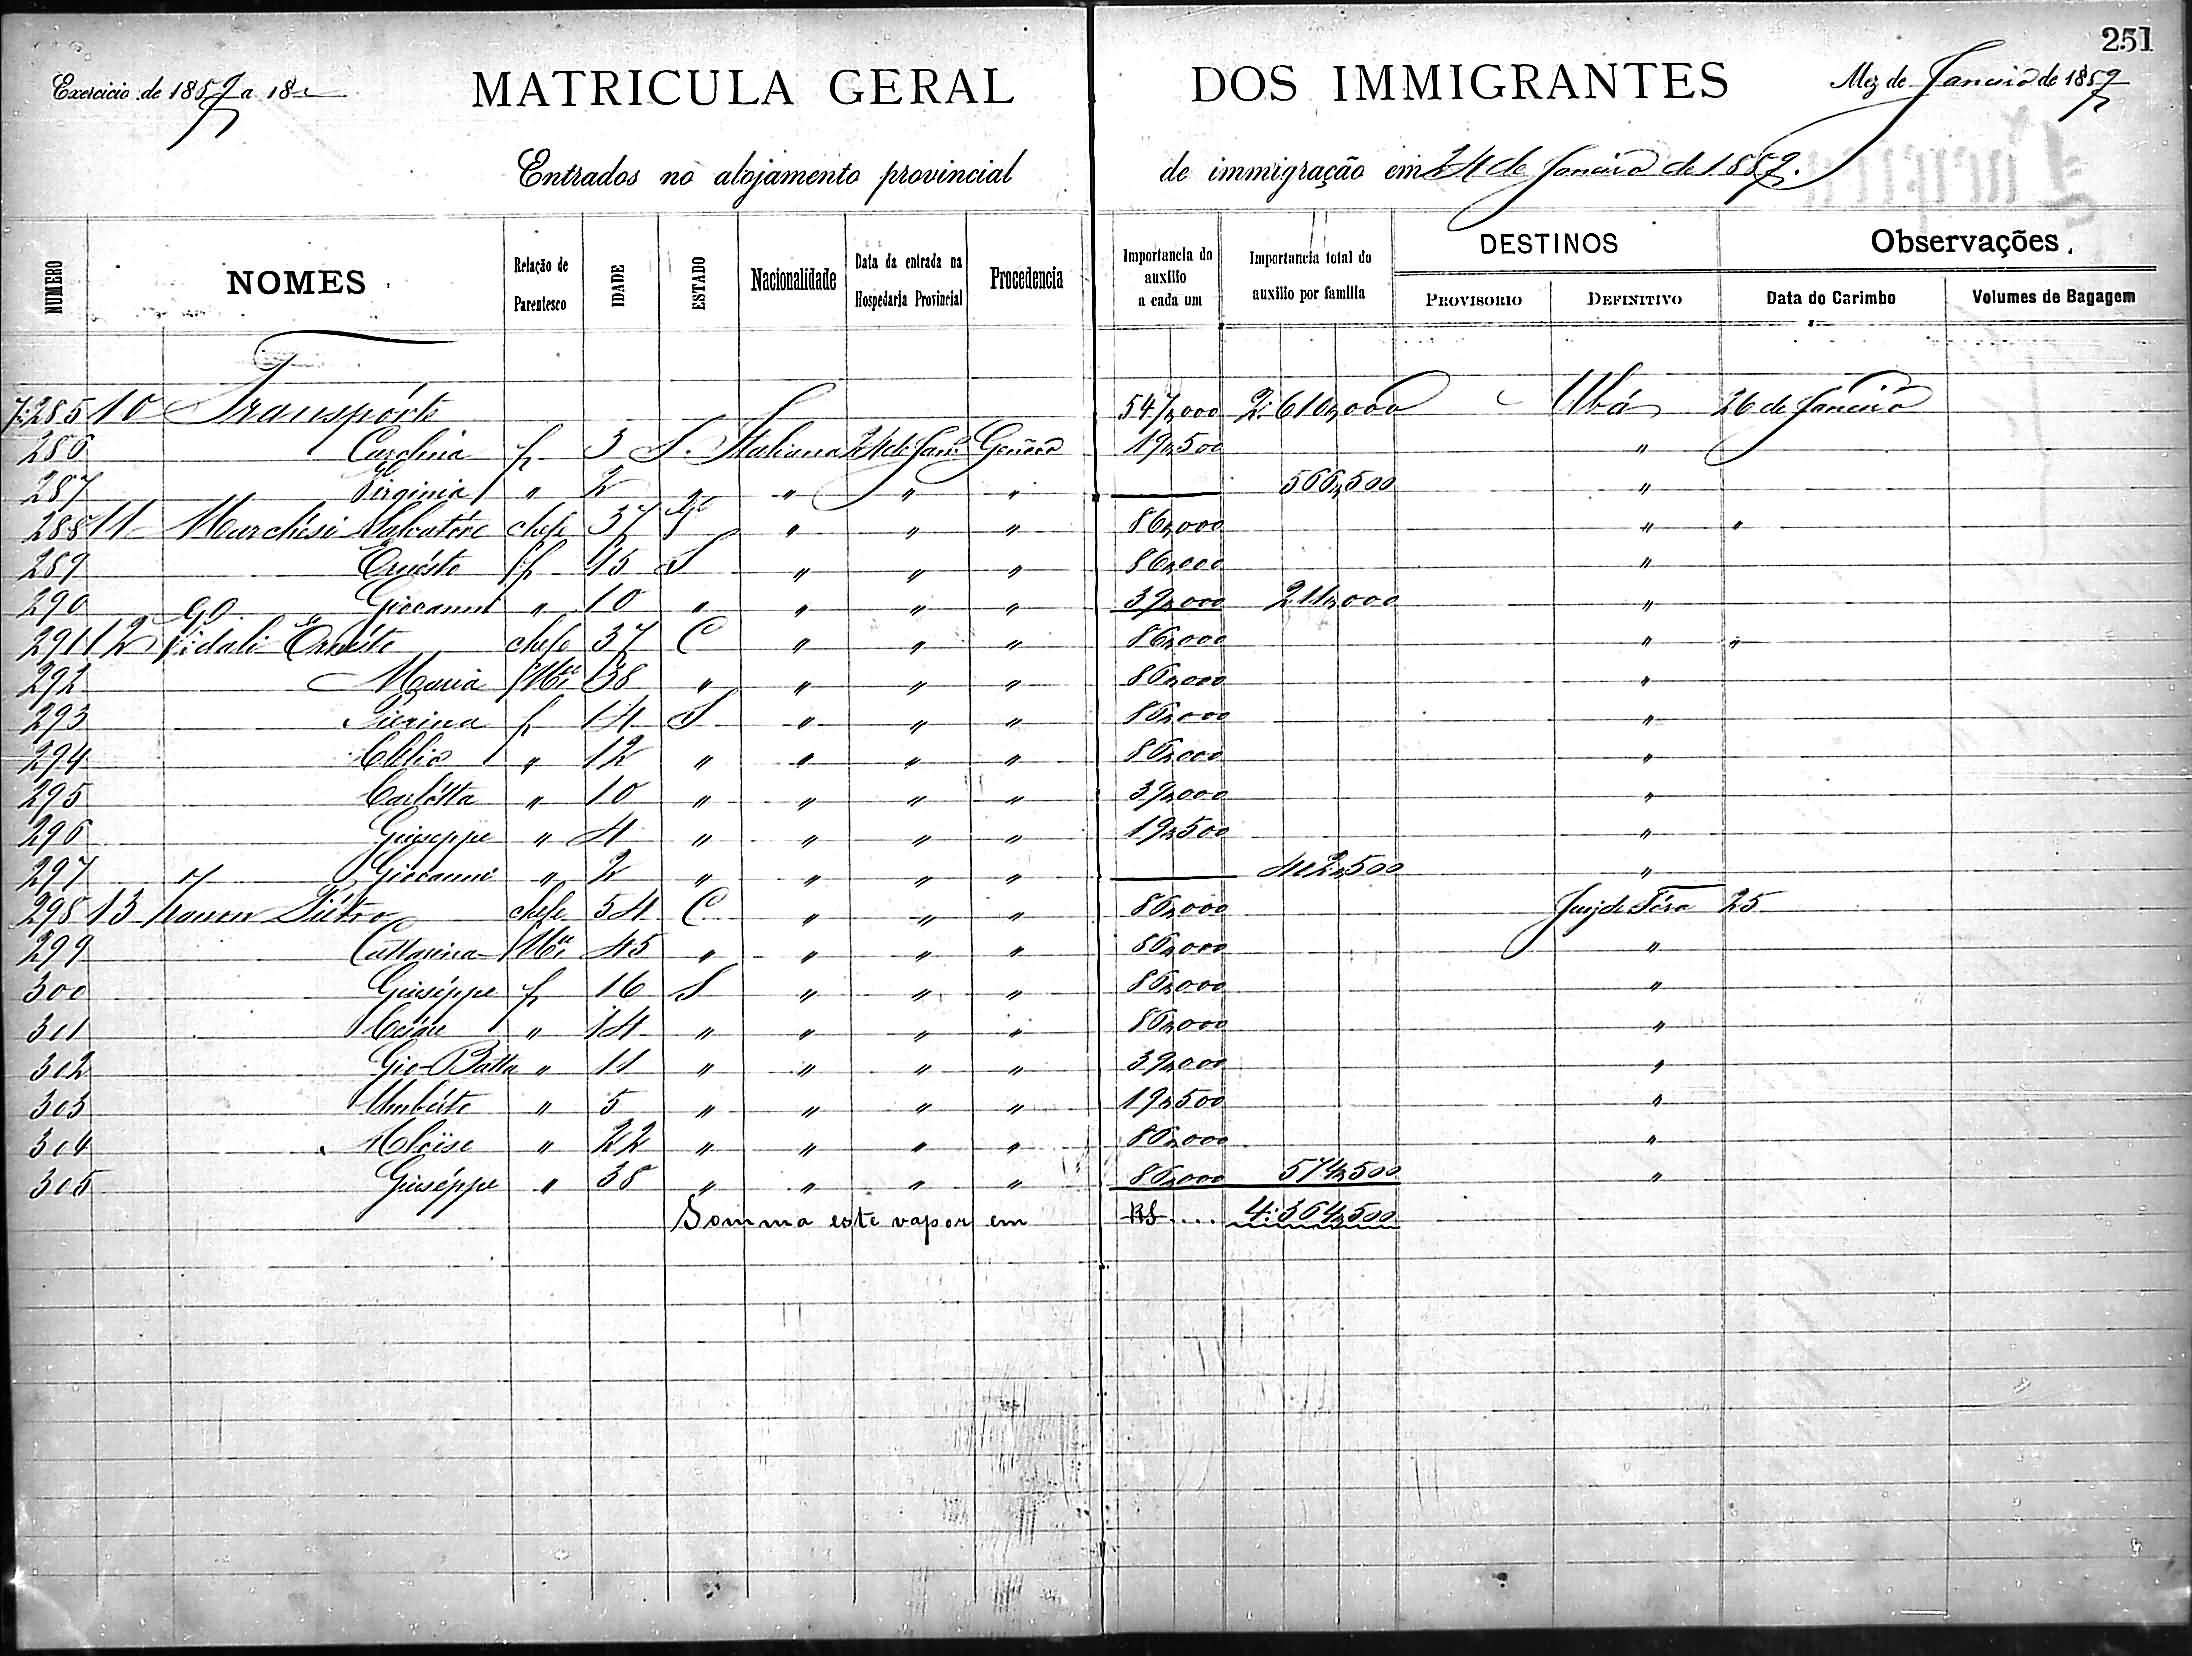 251
Exercicio de 1889 a 18
MATRICULA GERAL DOS IMMIGRANTES
Mez de Janeiro de 1889
Entrados no alojamento provincial de immigração em 24 de Janeiro de 1889.
NUMERO NOMES Relação de Parentesco IDADE ESTADO Nacionalidade Data da entrada na Hospedaria Provincial Procedencia Importancia do auxilio a cada um Importancia total do auxilio por familia DESTINOS PROVISORIO DEFINITIVO Observações. Data do Carimbo Volumes de Bagagem
7:285 10 Transpórte 547,000 2:610,000 Ubá 26 de Janeiro
286 Carolina f. 3 S. Italiana 24 de Janº Genova 19,500 "
287 Virginia " 2 " " " " 566,500 "
288 11 Marchési Salvatóre chefe 37 " " " 86,000 " "
289 Ernésto f. 15 S " " " 86,000 "
290 Giovanni " 10 " " " " 39,000 211,000 "
291 12 Vidali Ernésto chefe 37 C " " " 86,000 " "
292 Maria Mer 38 " " " " 86,000 "
293 Pierina f. 14 S " " " 86,000 "
294 Clelio " 12 " " " " 86,000 "
295 Carlótta " 10 " " " " 39,000 "
296 Giuseppe " 4 " " " " 19,500 "
297 Giovanni " 2 " " " " 402,500 "
298 13 Piétro chefe 54 C " " " 86,000 Juiz de Fóra 25
299 Cattarina Mer 45 " " " " 86,000 "
300 Giuséppe f. 16 S " " " 86,000 "
301 " 14 " " " " 86,000 "
302 Gio-Batta " 11 " " " " 39,000 "
303 Umbérto " 5 " " " " 19,500 "
304 " 22 " " " " 86,000 "
305 Giuséppe " 38 " " " " 86,000 574,500 "
Somma este vapor em RS.... 4:364,500